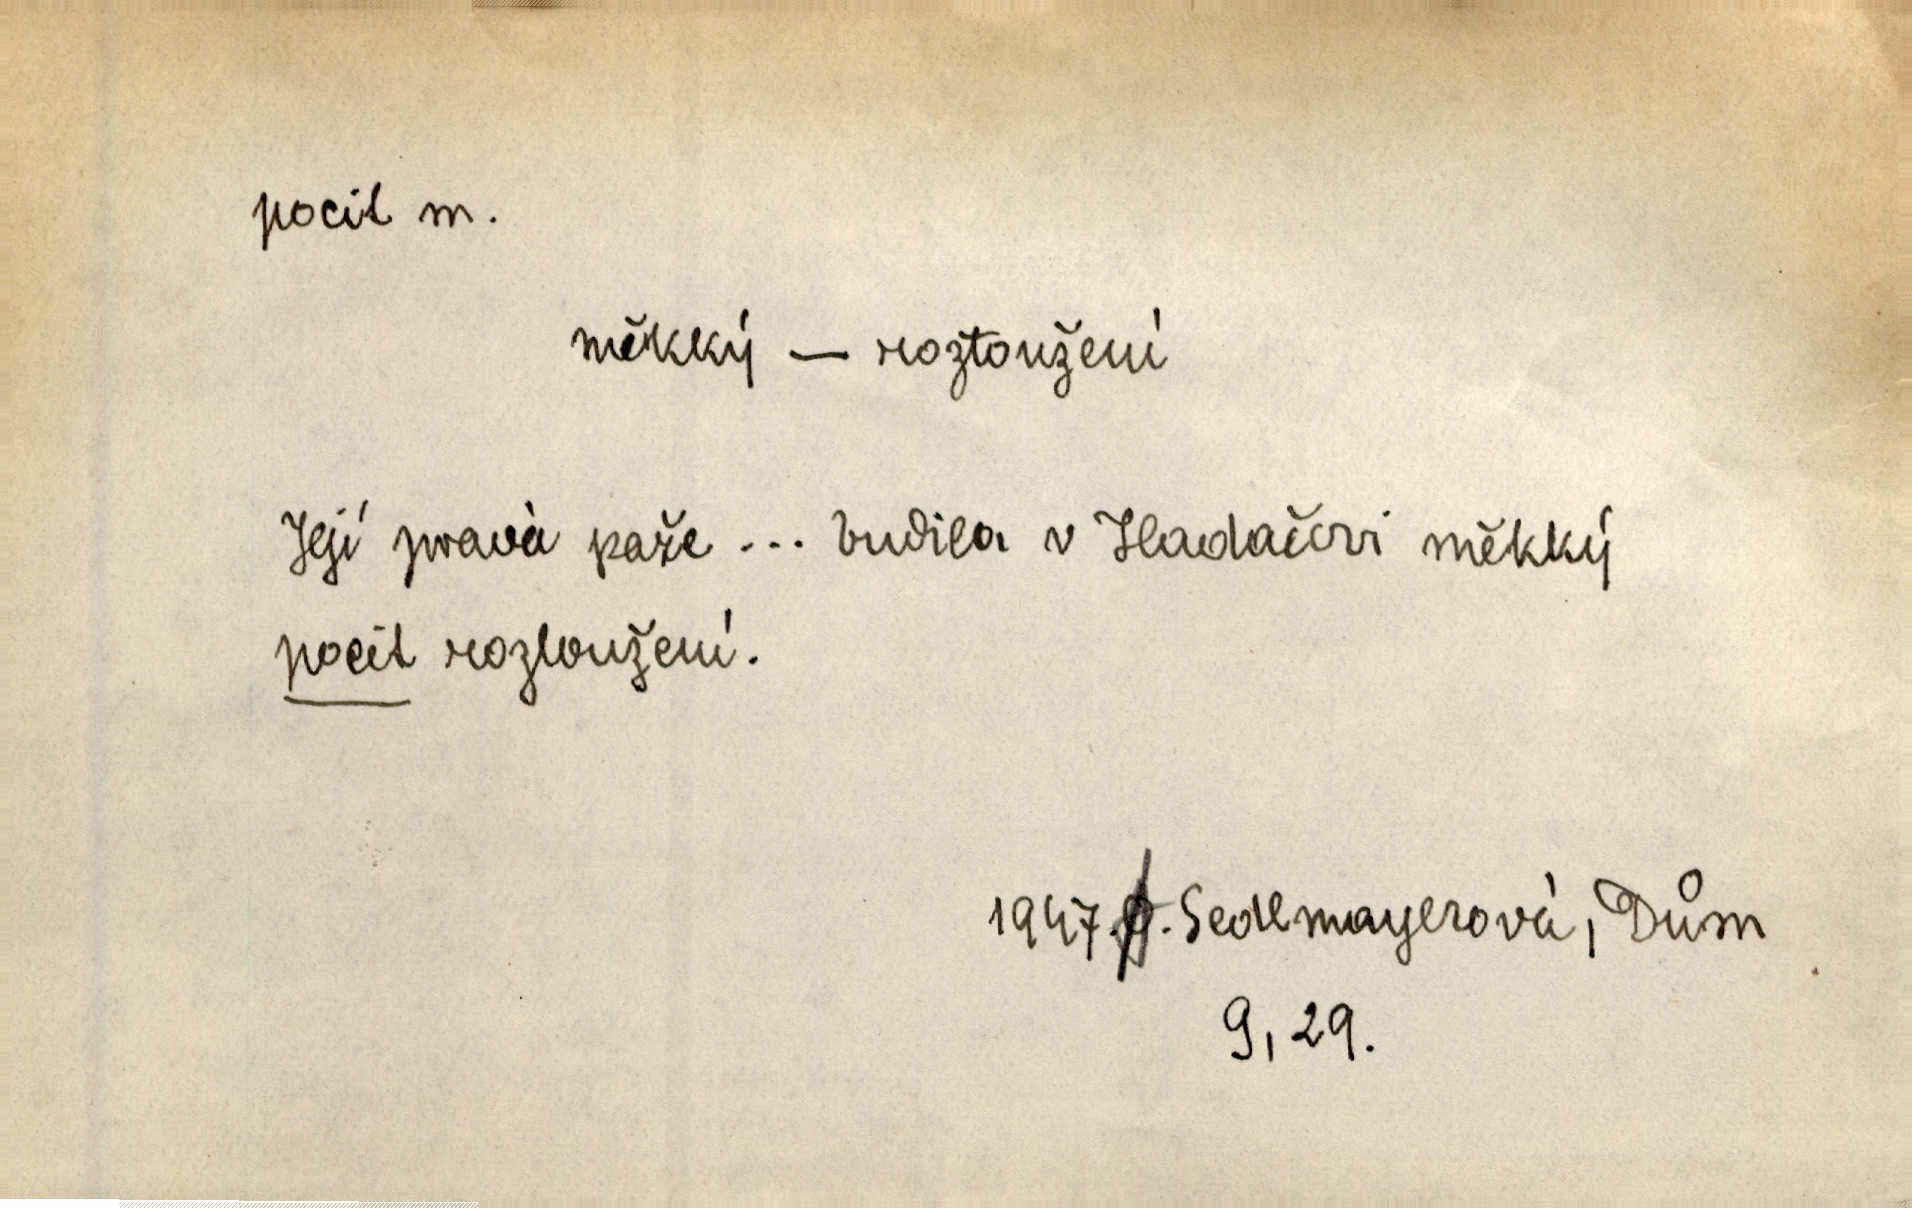 pocit m.
měkký — roztoužení
Její pravá paže ... budila v Hladačovi měkký
pocit roztoužení.
1947. Sedlmayerová, Dům
9, 29.